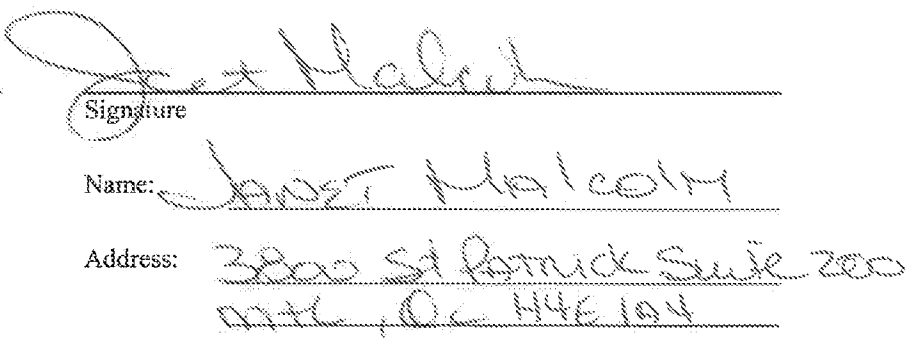 Janet Malcolm
Signature
Name: Janet Malcolm
Address: 3800 St Patrick Suite 200
Mtl, Qc H4E 1A4